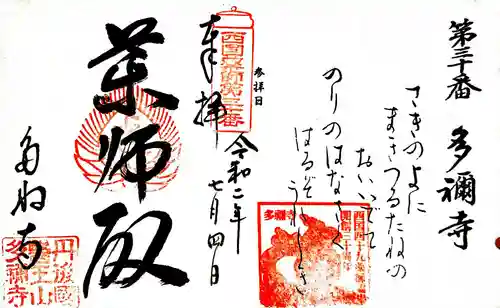 第三十番 多禰寺
さきのよに
まきつるたねの
おいいでて
のりのはなさく
はるぞうれしき
参拝日
奉拝
令和二年
七月四日
薬師殿
多禰寺
西国薬師第三十番
丹後國
醫王山
多禰寺
多禰寺
西国四十九薬師霊場
開創三十周年